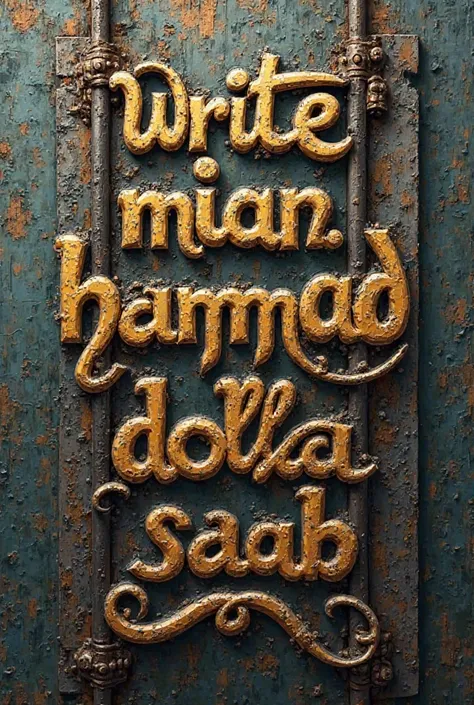 Write
mian.
hammad
dolla
saab